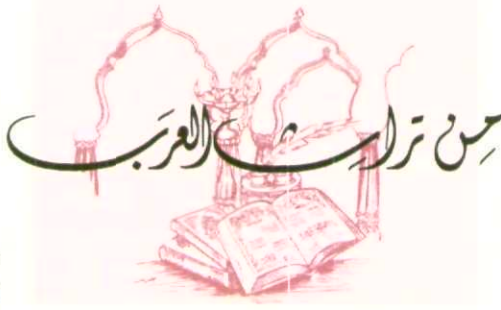 مِن تراث العرَب